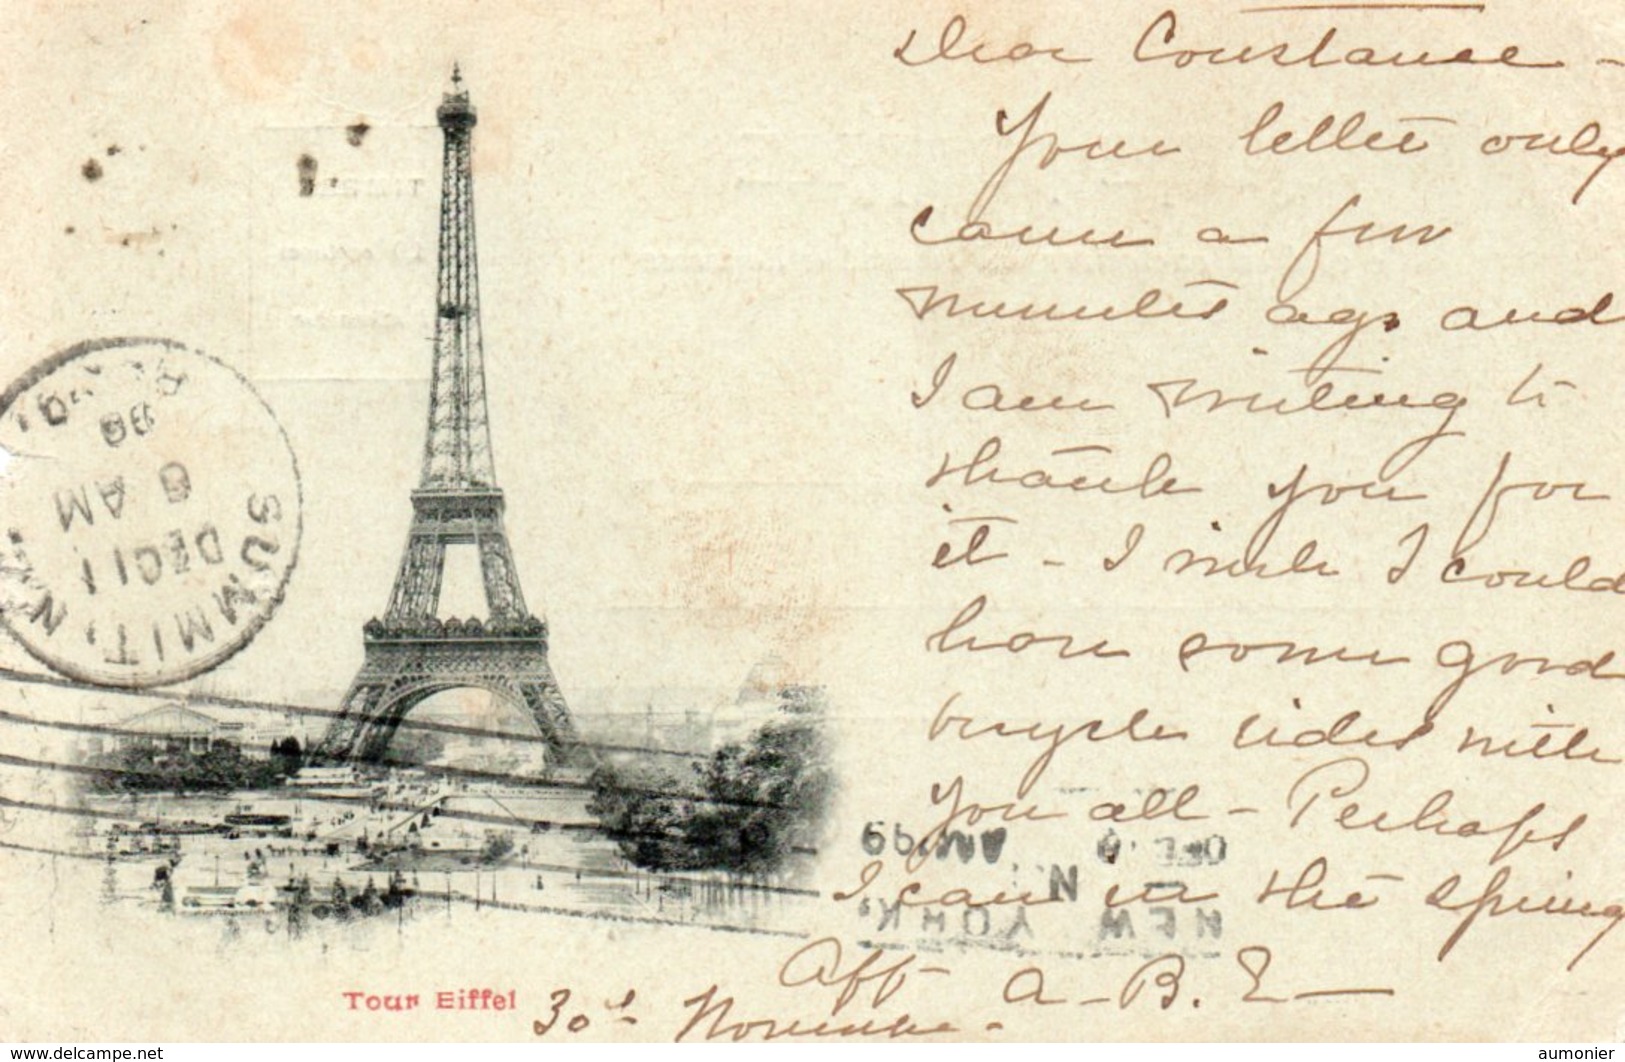 Dear Constance -
Your letter only
came a few
minutes ago and
I am writing to
thank you for
it - I wish I could
have some good
bicycle rides with
you all - Perhaps
I can in the spring
Aff A. B. E -
30th November -
Tour Eiffel
SUMMIT, N.J.
DEC 11
6 AM
98
REC'D.
NEW YORK,
N.
DEC 9 AM 99
www.delcampe.net
aumonier